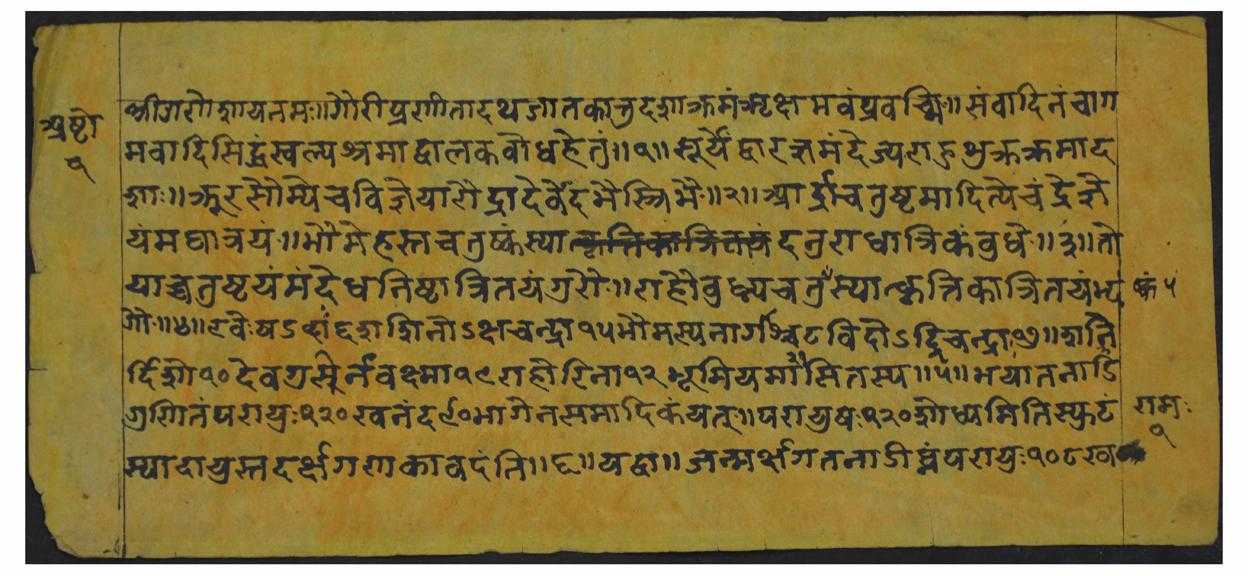 श्रीगणेशाय नमः॥ गौरीप्रणीतादथ जातकात्तु दशाक्रमंऋक्षामवंप्रवच्मि॥ संवादिनं चाग
अष्टो १
मवादिसिद्धं स्वल्पश्रमाद्वालकबोधहेतुं॥१॥ सूर्ये द्वारज्ञमंदेज्यराहुशुक्रक्रमाद
शाः॥ क्रूरसौम्ये च विज्ञेया रौद्रादेर्वेदभैस्त्रिभैः॥२॥ आर्द्राचतुष्टमादित्ये चंद्रे ज्ञे
यं मघात्रयं॥ भौमे हस्तचतुष्कं स्या दनुराधात्रिकं बुधे॥३॥ तो
याच्चतुष्टयं मंदे धनिष्ठात्रितयं गुरौ॥ राहौ बुध्न्यचतुस्यात्कृत्तिकात्रितयंभृ
ष्कं ५
गौः॥४॥ रवेः षऽ द्दशशिनोऽक्षचन्द्रा १५ भौमस्य नागाश्चि ८ विदोऽद्रिचन्द्रा १७॥ शने
र्दिशो १० देवगुरोर्नवक्ष्मा १९ राहौरिना १२ भूमियमाः सितस्य॥५॥ भयातनाडि
गुणितं परायुः १२० खनंद ९० भागेन समादिकं यत्॥ परायुषः १२० शोध्यमिति स्फुटं
रामः १
स्यादायुस्तदर्क्षं गणका वदंति॥६॥ यद्वा॥ जन्मर्क्षगतनाडीघ्नं परायुः १०८ खा